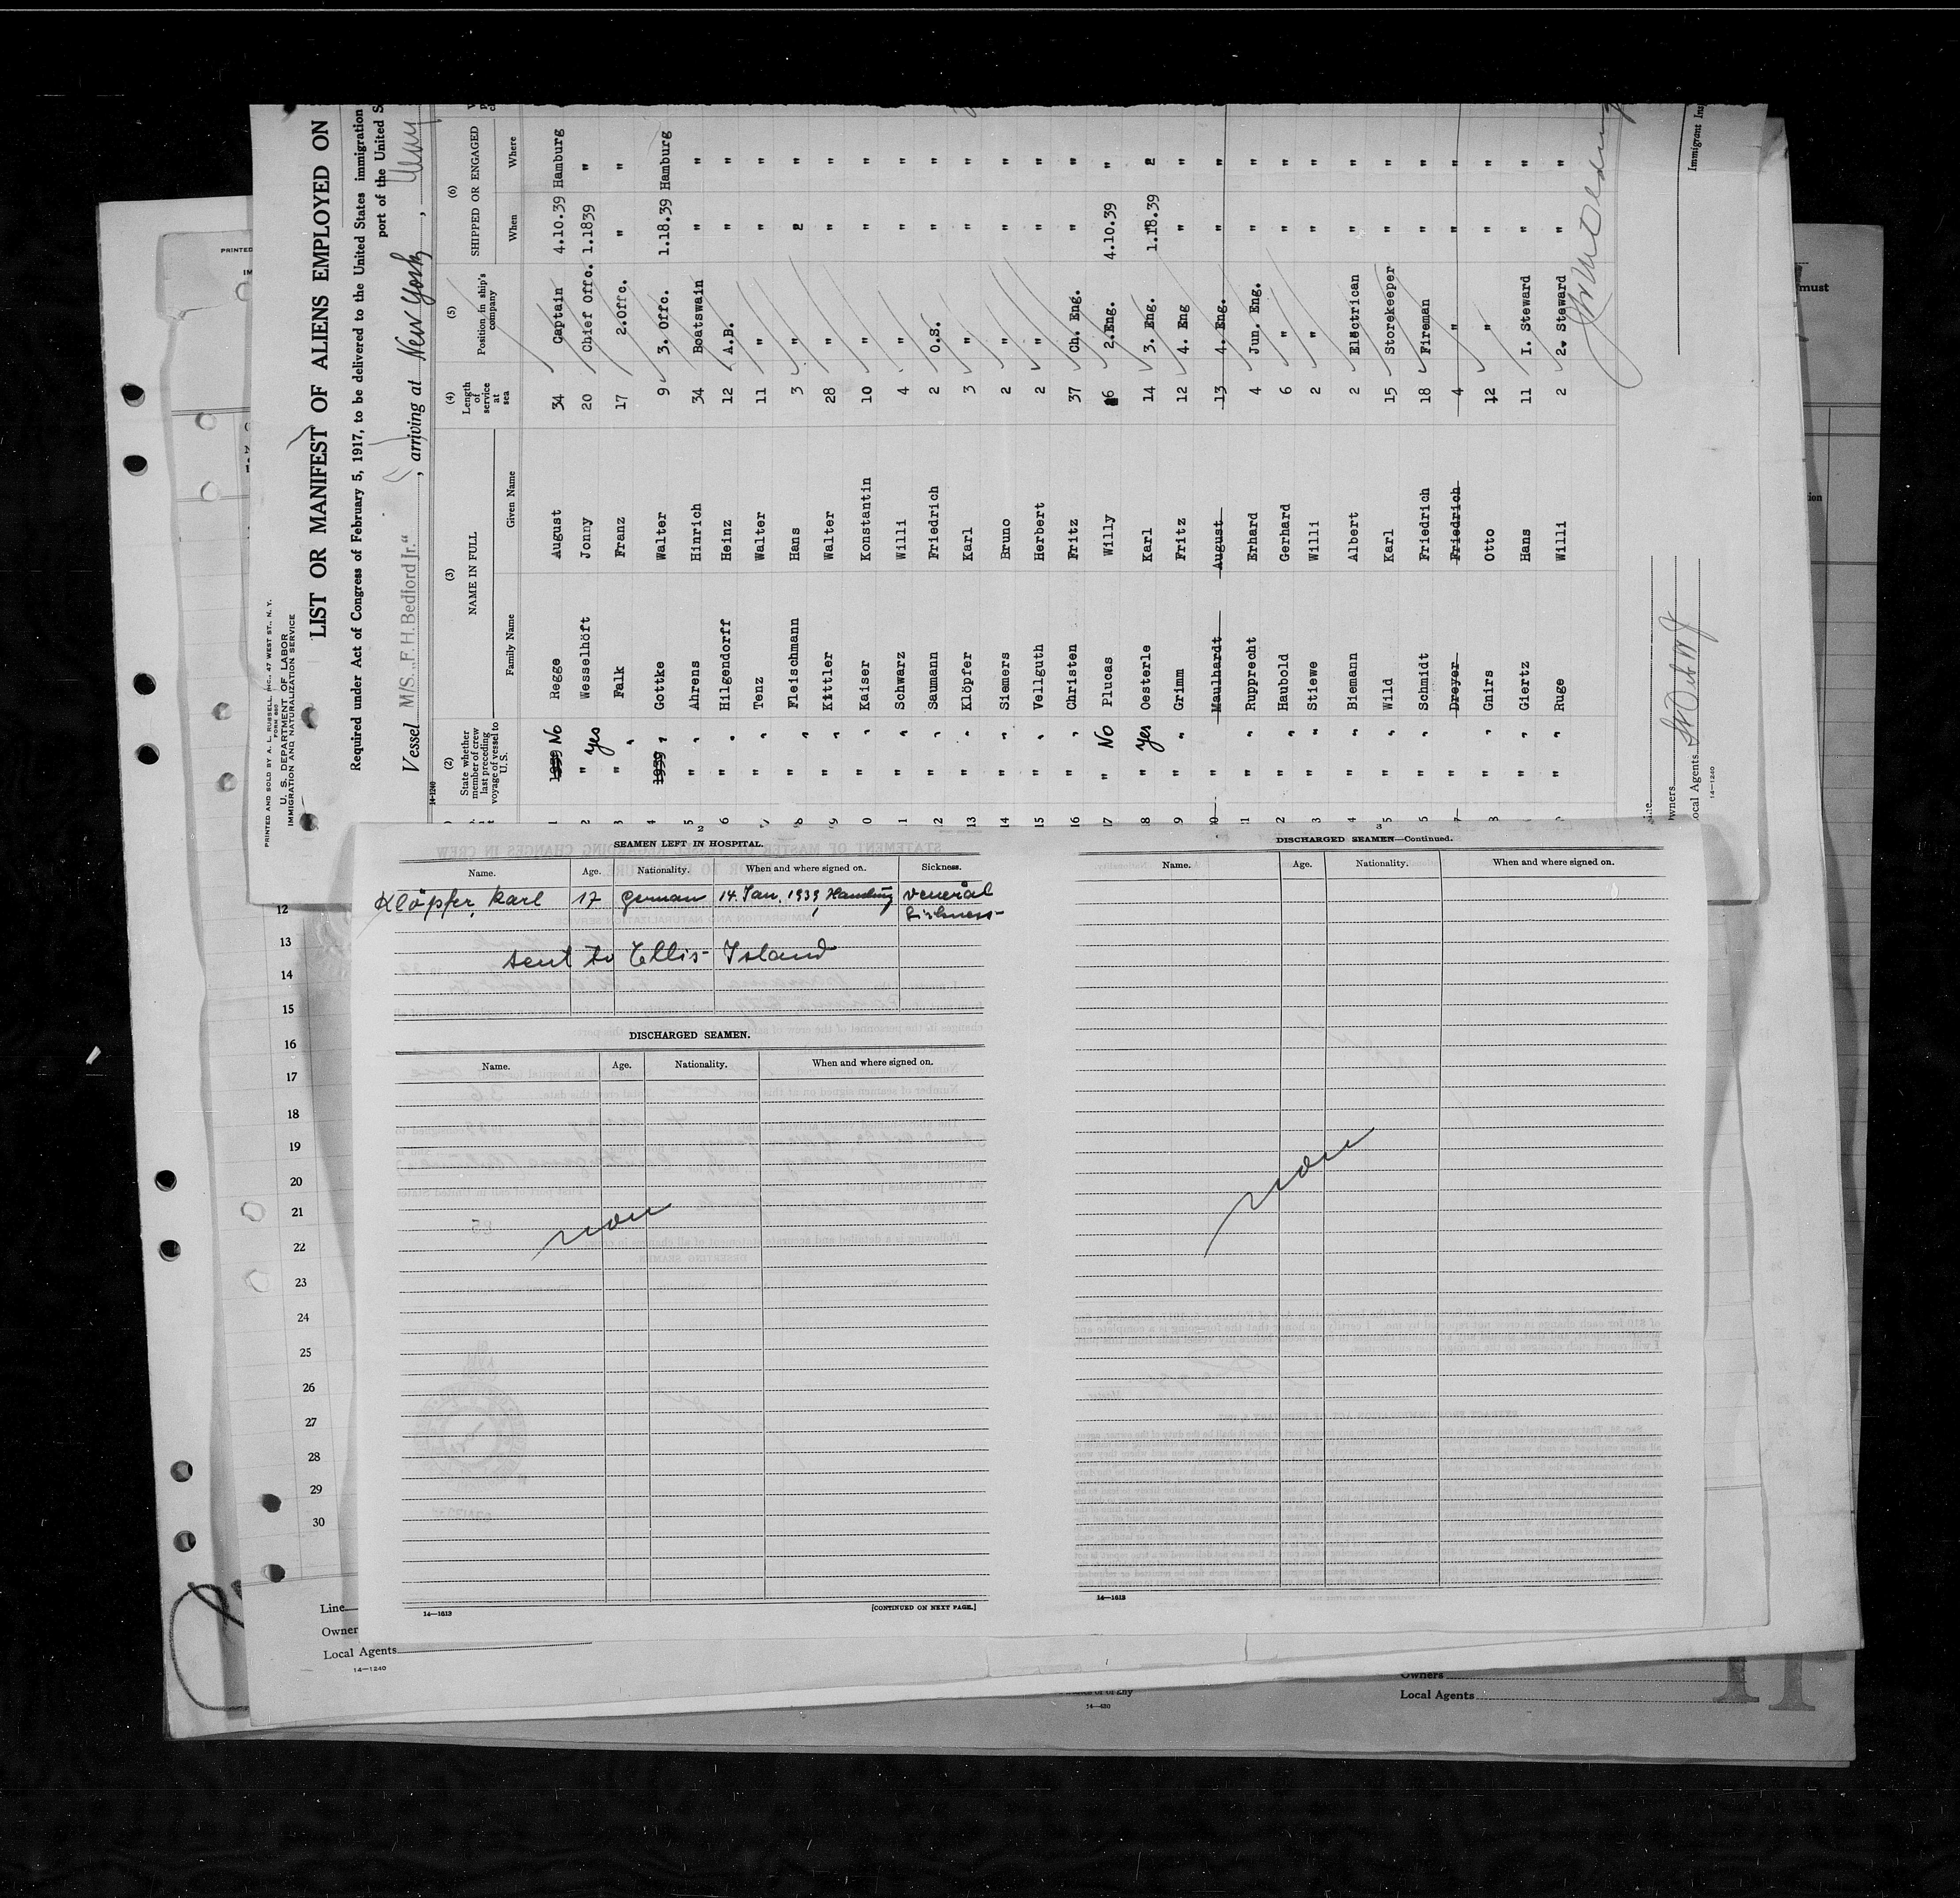 PRINTED AND SOLD BY A. L. RUSSELL, INC., 47 WEST ST., N. Y.
FORM 680
U. S. DEPARTMENT OF LABOR
IMMIGRATION AND NATURALIZATION SERVICE
LIST OR MANIFEST OF ALIENS EMPLOYED ON
Required under Act of Congress of February 5, 1917, to be delivered to the United States immigration
port of the United S
Vessel M/S. „F. H. Bedford Jr.“, arriving at New York,
14-1240
(2) (3) (4) (5) (6)
State whether member of crew last preceding voyage of vessel to U. S. NAME IN FULL Length of service at sea Position in ship's company SHIPPED OR ENGAGED
Family Name Given Name When Where
1 1939 No Regge August 34 Captain 4.10.39 Hamburg
2 " Yes Wesselhöft Jonny 20 Chief Offc. 1.1839 "
3 " " Falk Franz 17 2.Offc. " "
4 1939 " Gottke Walter 9 3. Offc. 1.18.39 Hamburg
5 " " Ahrens Hinrich 34 Boatswain " "
6 " " Hilgendorff Heinz 12 A.B. " "
7 " " Tenz Walter 11 " " "
8 " " Fleischmann Hans 3 " " "
9 " " Kittler Walter 28 " " "
0 " " Kaiser Konstantin 10 " " "
1 " " Schwarz Willi 4 " " "
12 " " Saumann Friedrich 2 O.S. " "
13 " " Klöpfer Karl 3 " " "
14 " " Siemers Bruno 2 " " "
15 " " Vellguth Herbert 2 " " "
16 " " Christen Fritz 37 Ch. Eng. " "
17 " No Plucas Willy 26 2.Eng. 4.10.39 "
18 " Yes Oesterle Karl 14 3. Eng. 1.18.39 "
9 " " Grimm Fritz 12 4. Eng " "
0 " Maulhardt August 13 4. Eng. " "
1 " " Rupprecht Erhard 4 Jun. Eng. " "
2 " " Haubold Gerhard 6 " " "
3 " " Stiewe Willi 2 " " "
4 " " Biemann Albert 2 Electrican " "
5 " " Wild Karl 15 Storekeeper " "
6 " " Schmidt Friedrich 18 Fireman " "
7 " Dreyer Friedrich 4 " " "
8 " " Gnirs Otto 12 " " "
" " Giertz Hans 11 I. Steward " "
" " Ruge Willi 2 2. Steward " "
Immigrant Ins
wners
ocal Agents
14-1240
2
SEAMEN LEFT IN HOSPITAL.
Name. Age. Nationality. When and where signed on. Sickness.
Klöpfer, Karl 17 German 14. Jan. 1939, Hamburg venerial
Sickness-
sent to Ellis-Island
DISCHARGED SEAMEN.
Name. Age. Nationality. When and where signed on.
non
14—1613
[CONTINUED ON NEXT PAGE.]
3
DISCHARGED SEAMEN—Continued.
Name. Age. Nationality. When and where signed on.
non
14—1613
12
13
14
15
16
17
18
19
20
21
22
23
24
25
26
27
28
29
30
Line
Owner
Local Agents
14—1240
PRINTED
must
Owners
Local Agents
14—480